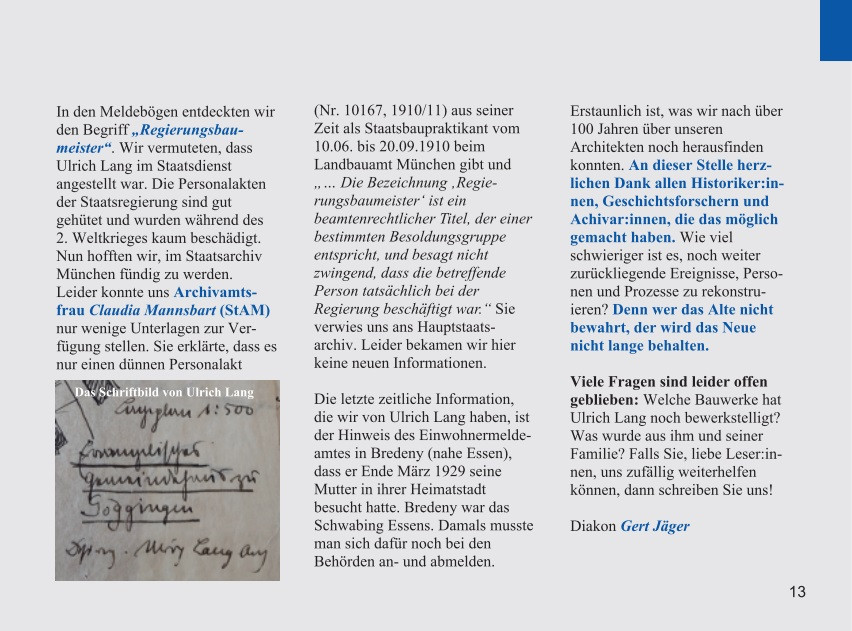 In den Meldebögen entdeckten wir
den Begriff „Regierungsbau-
meister“. Wir vermuteten, dass
Ulrich Lang im Staatsdienst
angestellt war. Die Personalakten
der Staatsregierung sind gut
gehütet und wurden während des
2. Weltkrieges kaum beschädigt.
Nun hofften wir, im Staatsarchiv
München fündig zu werden.
Leider konnte uns Archivamts-
frau Claudia Mannsbart (StAM)
nur wenige Unterlagen zur Ver-
fügung stellen. Sie erklärte, dass es
nur einen dünnen Personalakt
Das Schriftbild von Ulrich Lang
1:500
Evangelisches
Gemeindehaus zu
Göggingen
Lang
(Nr. 10167, 1910/11) aus seiner
Zeit als Staatsbaupraktikant vom
10.06. bis 20.09.1910 beim
Landbauamt München gibt und
„… Die Bezeichnung ‚Regie-
rungsbaumeister‘ ist ein
beamtenrechtlicher Titel, der einer
bestimmten Besoldungsgruppe
entspricht, und besagt nicht
zwingend, dass die betreffende
Person tatsächlich bei der
Regierung beschäftigt war.“ Sie
verwies uns ans Hauptstaats-
archiv. Leider bekamen wir hier
keine neuen Informationen.
Die letzte zeitliche Information,
die wir von Ulrich Lang haben, ist
der Hinweis des Einwohnermelde-
amtes in Bredeny (nahe Essen),
dass er Ende März 1929 seine
Mutter in ihrer Heimatstadt
besucht hatte. Bredeny war das
Schwabing Essens. Damals musste
man sich dafür noch bei den
Behörden an- und abmelden.
Erstaunlich ist, was wir nach über
100 Jahren über unseren
Architekten noch herausfinden
konnten. An dieser Stelle herz-
lichen Dank allen Historiker:in-
nen, Geschichtsforschern und
Achivar:innen, die das möglich
gemacht haben. Wie viel
schwieriger ist es, noch weiter
zurückliegende Ereignisse, Perso-
nen und Prozesse zu rekonstru-
ieren? Denn wer das Alte nicht
bewahrt, der wird das Neue
nicht lange behalten.
Viele Fragen sind leider offen
geblieben: Welche Bauwerke hat
Ulrich Lang noch bewerkstelligt?
Was wurde aus ihm und seiner
Familie? Falls Sie, liebe Leser:in-
nen, uns zufällig weiterhelfen
können, dann schreiben Sie uns!
Diakon Gert Jäger
13